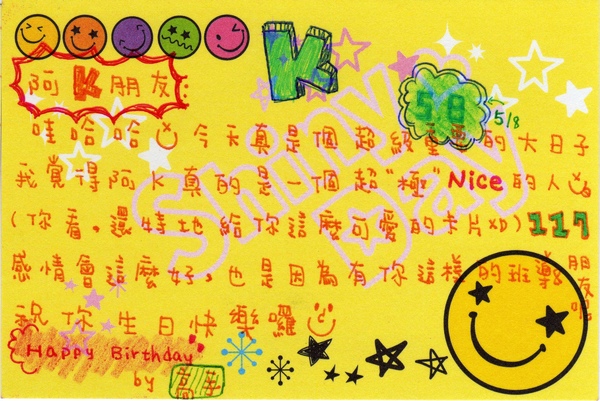 K
阿K朋友:
58
5/8
哇哈哈 今天真是個超級重要的大日子
我覺得阿K真的是一個超"極"Nice的人
(你看,還特地給你這麼可愛的卡片XD) 117
感情會這麼好,也是因為有你這樣的班導&朋友啦
祝你生日快樂囉
Happy Birthday
by
Shiny Day